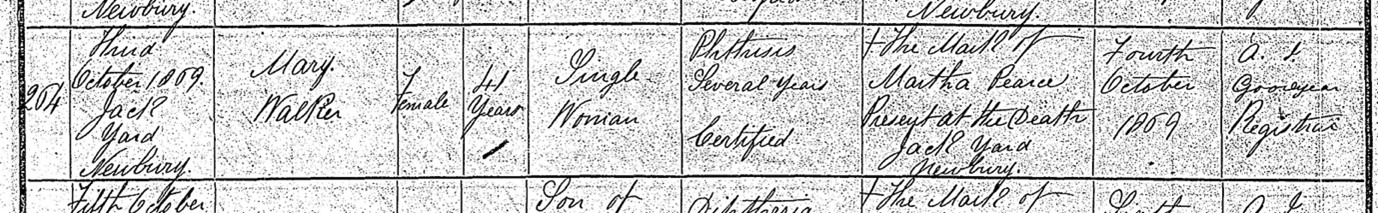 Newbury.
Newbury.
264
Third
October 1869.
Jack
Yard
Newbury.
Mary.
Walker
Female
41
Years
Single
Woman
Phthisis
Several Years
Certified
+ The Mark of
Martha Pearce
Present at the Death
Jack Yard
Newbury.
Fourth
October
1869
A. J.
Goodyear
Registrar
Fifth October
Son of
Diphtheria
+ The Mark of
A. J.